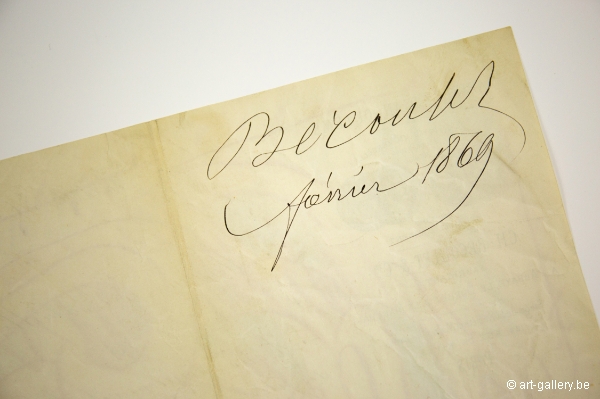 Bécoulet
février 1869
© art-gallery.be